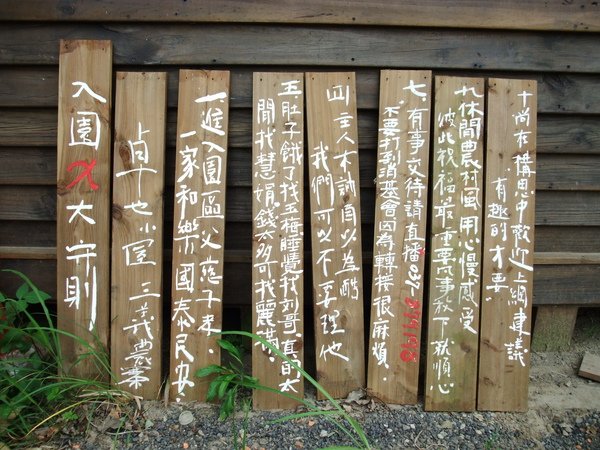 入園大守則
卓也小屋 三義農業
一.進入園區父慈子孝.
一家和樂國泰民安.
五.肚子餓了找玉梅睡覺找刘哥真的太
閒找慧娟錢太多可找麗滿.
四.主人不訥自以為酷
我們可以不要理他
七.有事交待請直播037
不要打到消基會因為轉接很麻煩.
九休閒農村風用心慢感受
彼此祝福最重要萬事放下就順心
十尚在構思中歡迎上網建議
有趣的才要.